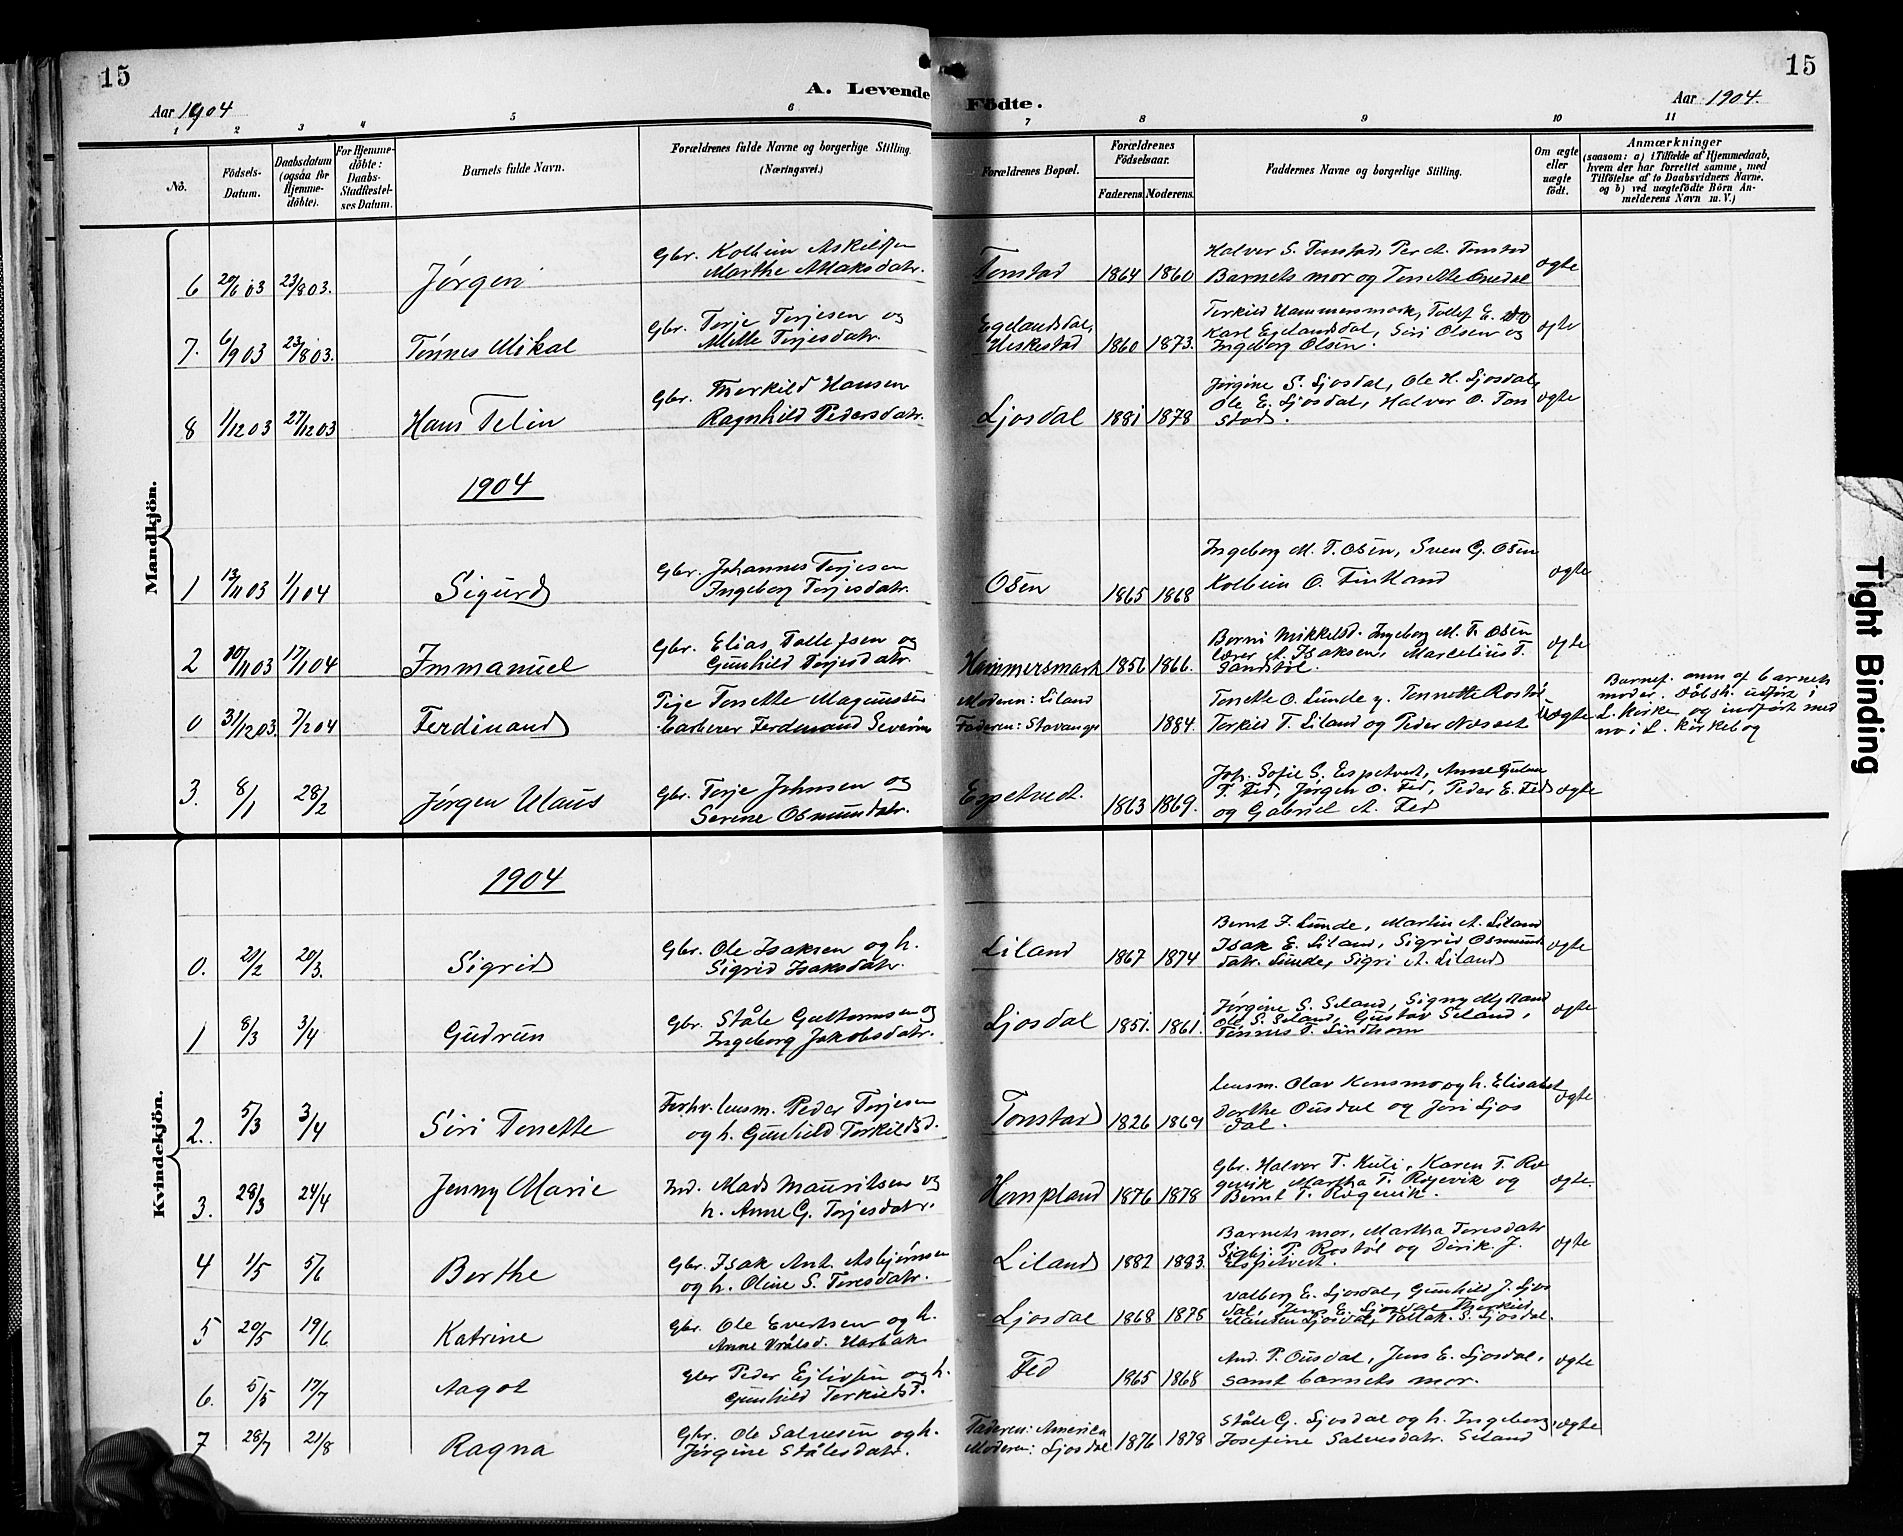 15
15
Aar 1904
A. Levende Födte.
Aar 1904.
1 2 3 4 5 6 7 8 9 10 11
No.
Födsels-Datum.
Daabsdatum (ogsaa for Hjemme-döbte).
For Hjemme-döbte: Daabs-Stadfæstel-ses Datum.
Barnets fulde Navn.
Forældrenes fulde Navne og borgerlige Stilling. (Næringsvei.)
Forældrenes Bopæl.
Forældrenes Födselsaar.
Faderens. Moderens.
Faddernes Navne og borgerlige Stilling.
Om ægte eller uægte födt.
Anmærkninger
(saasom: a) i Tilfælde af Hjemmedaab, hvem der har forrettet samme, med Tilföielse af to Daabsvidners Navne, og b) ved uægtefödte Börn An-melderens Navn m. V.)
Mandkjön.
6 20/6 03 23/8 03. Jørgen Gbr. Kolbein Askildsen Marthe Maksdatr. Tonstad 1864 1860 Halver S. Tonstad, Per A. Tonstad Barnets mor og Tonette Ousdal ægte
7. 6/9 03 23/8 03. Tønnes Mikal Gbr. Terje Terjesen og Mette Terjesdatr. Egelandsdal, Heskestad 1860 1873. Terkild Hammersmark, Tollef E. do Karl Egelandsdal, Siri Olsen og Ingeborg Olsen. ægte
8 1/12 03 27/12 03 Hans Telin Gbr. Therkild Hansen Ragnhild Pedersdatr. Ljosdal 1881 1878 Jørgine S. Ljosdal, Ole H. Ljosdal, Ole E. Ljosdal, Halver O. Ton stad. ægte
1904
1 13/11 03 1/1 04 Sigurd Gbr. Johannes Terjesen Ingeborg Terjesdatr. Osen 1865 1868 Ingeborg M. T. Osen, Sven G. Osen Kolbein O. Finland ægte
2 10/11 03 17/1 04 Immanuel Gbr. Elias Tollefsen og Gunhild Terjesdatr. Hammersmark 1856 1866. Berni Mikkelsd. Ingeborg M. T. Osen Lærer A. Isaksen, Marselius T. Sandstøl. ægte
0 31/12 03. 7/2 04 Ferdinand Pige Tonette Magnusdr. barberer Ferdinand Severins Moderen: Liland Faderen: Stavanger 1884. Tonette O. Lunde g. Tonnette Rostøl Terkild T. Liland og Peder Næset Uægte Barnef. anm af barnets moder. Tølsh. udført i L. kirke og indført med no i L. kirkebog
3. 8/1 28/2 Jørgen Klaus Gbr. Terje Johnsen og Serine Osmundatr. Espetvedt. 1863 1869. Joh. Sofie S. Espetvedt, Anne T. Fed, Jørgen O. Fed, Peder E. Fed og Gabriel A. Fed ægte
Kvindekjön.
1904
0. 21/2 20/3. Sigrid Gbr. Ole Isaksen og h. Sigrid Isaksdatr. Liland 1867 1874 Bernt F. Lunde, Martin A. Liland Isak E. Liland, Sigrid Osmunds datr. Lunde, Sigri A. Liland ægte
1 8/3 3/4 Gudrun Gbr. Ståle Guttormsen og Ingeborg Jakobsdatr. Ljosdal 1851. 1861. Jørgine S. Seland, Signy Myrland Ole S. Seland, Gustav Seland, Tønnes T. Lindhom ægte
2. 5/3 3/4 Siri Tonette Forhv. lensm. Peder Terjesen og h. Gunhild Torkildsd. Tonstad 1826 1864 Lensm. Olav Konsmo og h. Elisabet Dorthe Ousdal og Jori Ljos dal. ægte
3. 28/3 24/4 Jenny Marie Ind. Mads Mauritsen og h. Anne G. Terjesdatr. Hompland 1876 1878 Gbr. Halver T. Kuli, Karen T. Rø gevik Martha T. Røgevik og Bernt T. Røgevik. ægte.
4 1/5 5/6 Berthe Gbr. Isak Ant. Asbjørnsen og h. Oline S. Teresdatr. Liland 1882 1883. Barnets mor, Martha Teresdatr Sigbj. P. Rostøl og Dirik. J. Espetvedt. ægte
5 20/5 19/6 Katrine Gbr. Ole Evertsen og h. Anne Vrålsd. Harbak Ljosdal 1868 1875 Valborg E. Ljosdal, Gunhild J. Ljos dal, Jens E. Ljosdal Therkild Hansen Ljosdal, Tallak. S. Ljosdal.
6. 5/5 17/7 Aagot Gbr Peder Ejlivsen og h. Gunhild Terkielsd. Fed 1865 1868 And. P. Ousdal, Jens E. Ljosdal, samt barnets mor. ægte
7 28/7 21/8 Ragna Gbr. Ole Salvesen og h. Jørgine Ståles datr. Faderen: Amerika Moderen: Ljosdal 1876 1878 Ståle G. Ljosdal og h. Ingeborg, Josefine Salvesdatr. Seland ægte
Tight Binding